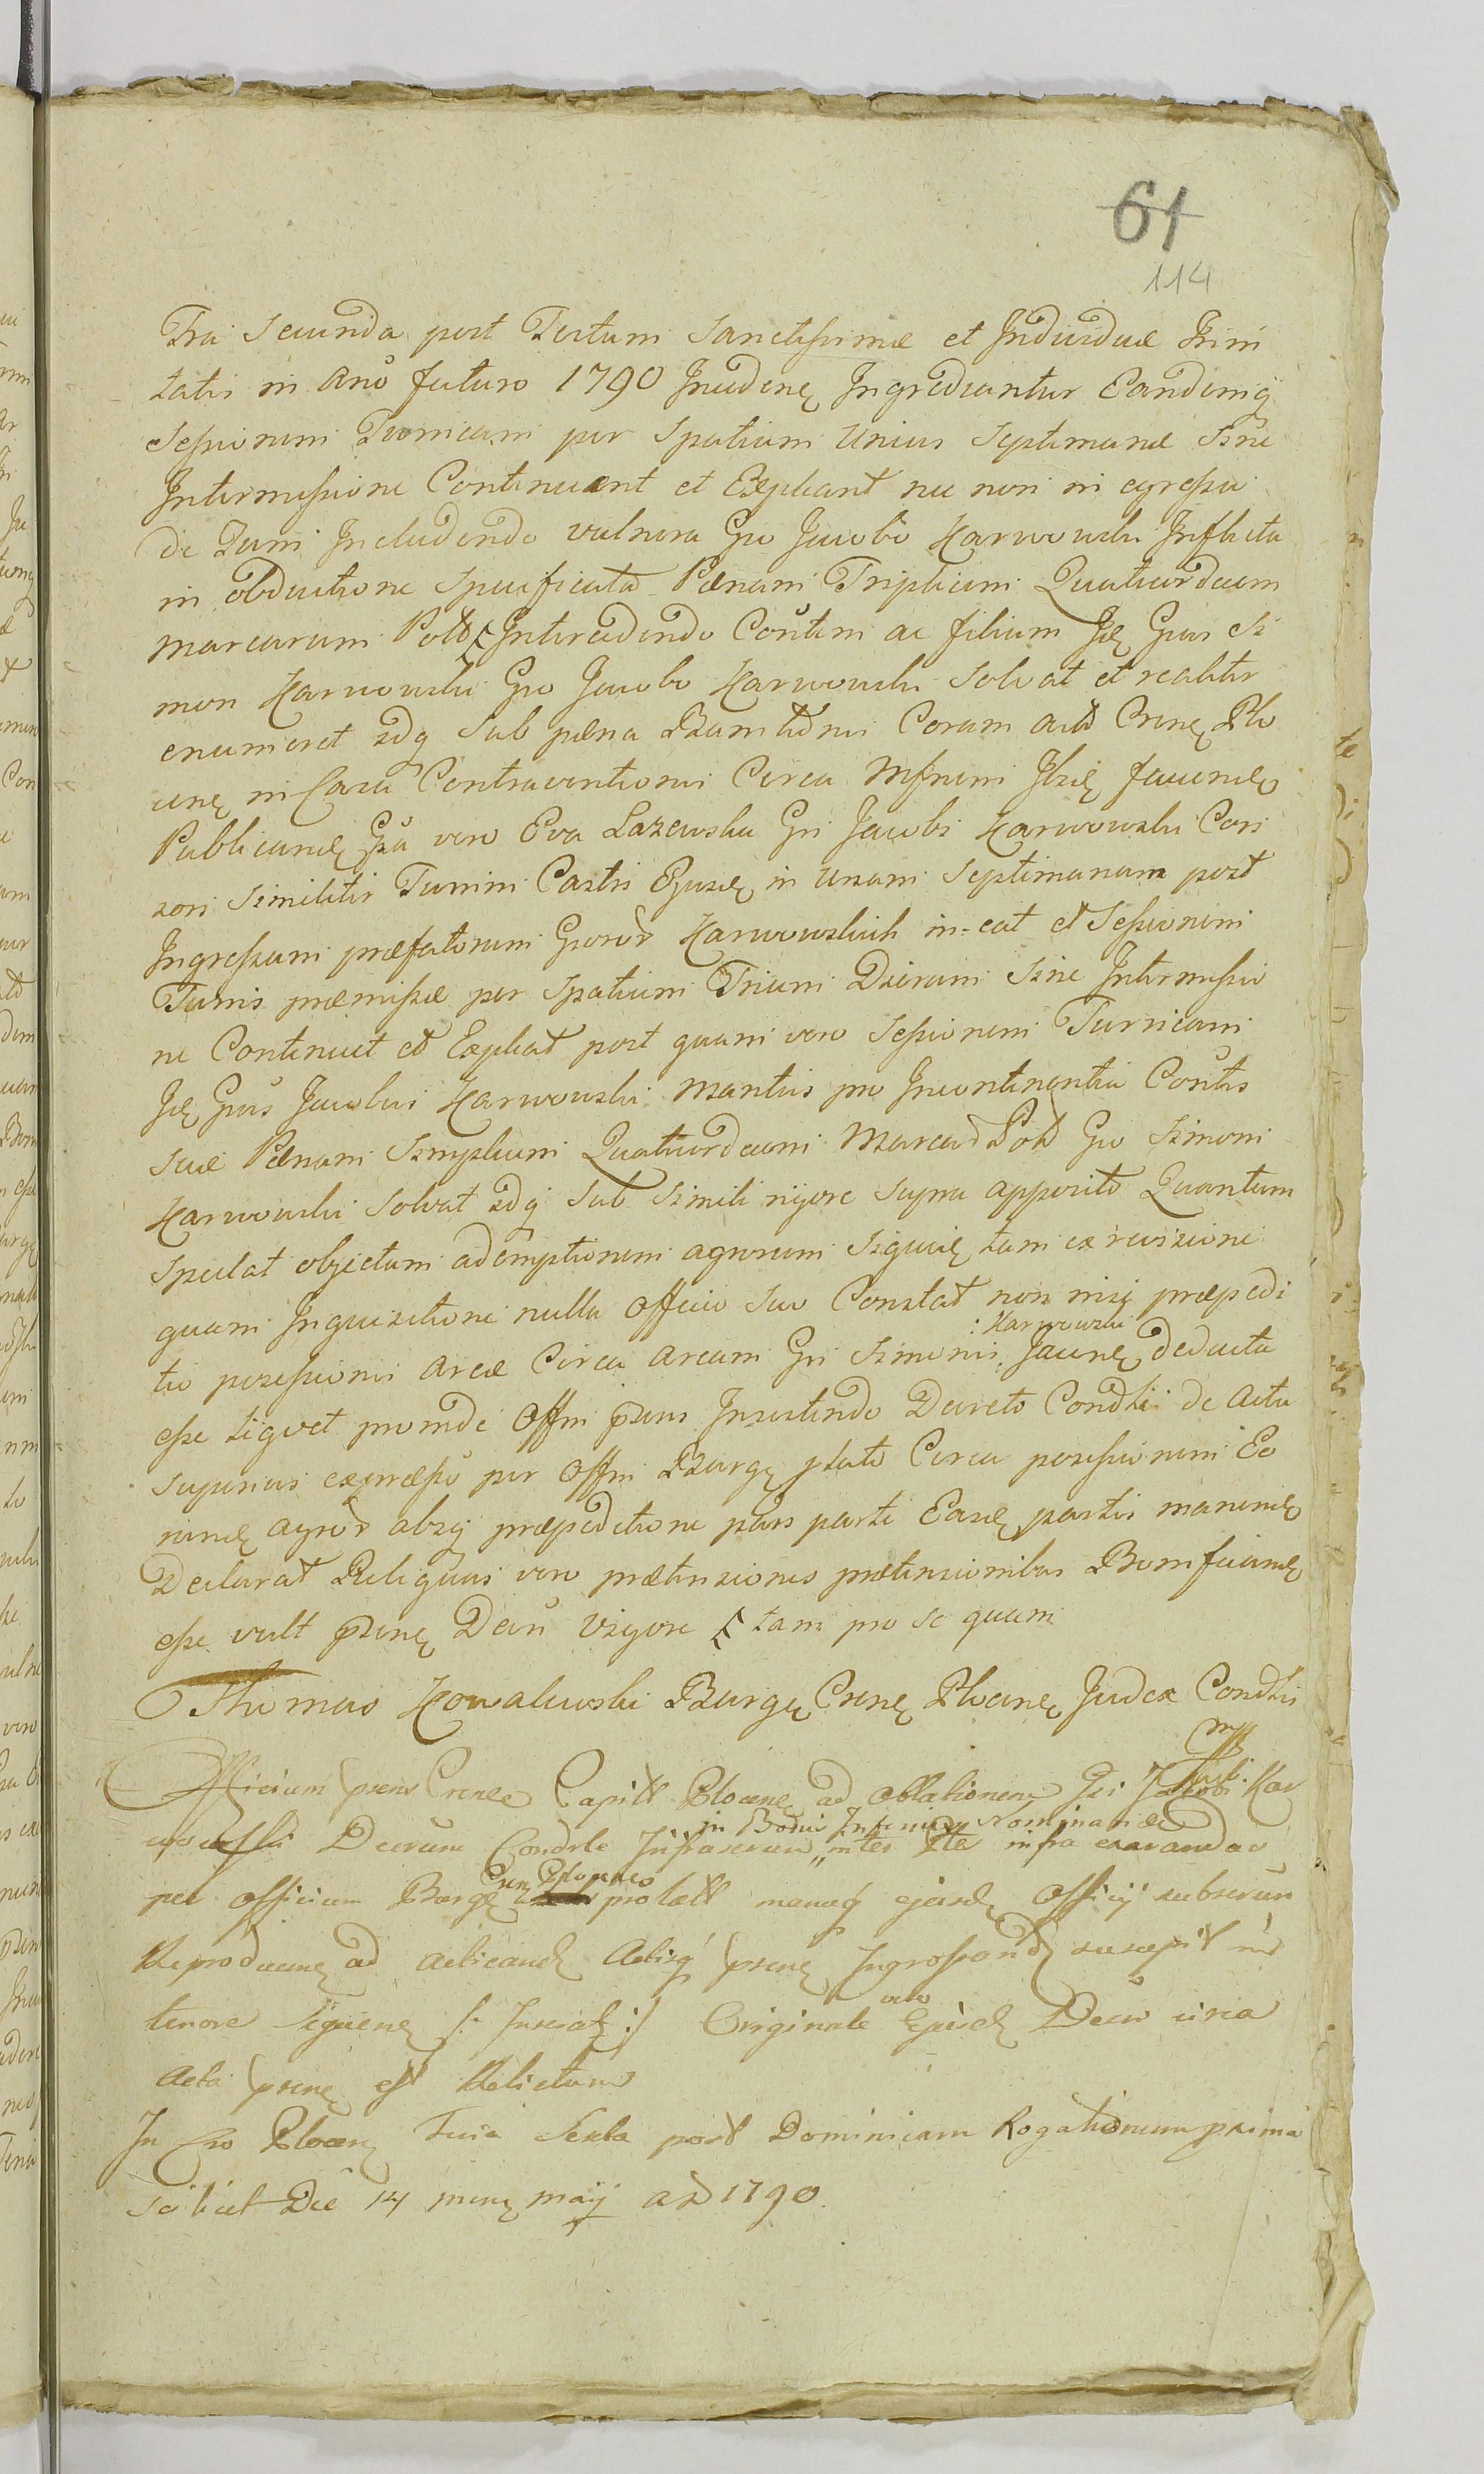 61
114
Fria Secunda post Festum Sanctissimæ et Individuæ Trini
tatis in Año futuro 1790 Incidenę Ingrediantur Eandemq̃
Sessionem Turricam per Spatium Unius Septimanæ Sine
Intermissione Continuent et Expleant nec non in egressu
de Turri Includendo vulnera Gro Jacobo Karwowski Inflicta
in obductione Specificata Pænam Triplicem Quatuordecim
Marcarum Polł Intercedendo Coñtem ac filium Idę Grus Si
mon Karwowski Gro Jacobo Karwowski Solvat et realiter
enumeret idq Sub pæna Banitionis Coram actis Crenę Plo
cenę in Casu Contraventionis Circa Mñrem Ibię faciendę
Publicandę Gsa vero Eva Lazewska Gri Jacobi Karwowski Con
sors Similiter Turrim Castri Ejusdę in Unam Septimanam post
Ingressum præfatorum Gnorõr Karwowskich in-eat et Sessionem
Turris præmissæ per Spatium Trium Dierum Sine Intermissio
ne Continuet et Expleat post quam vero Sessionem Turricam
Idę Grus Jacobus Karwowski Maritus pro Incontinentia Coñtis
Suæ Pænam Simplicem Quatuordecim Marcar Polł Gro Simoni
Karwowski Solvat idq Sub Simili rigore Supra apposito Quantum
Spectat objectam ademptionem agrorum Siquidę tam ex revisione
quam Inquisitione nulla Officio Suo Constat non nisi præpedi
:Karwowski
tio possessionis Areæ Circa Aream Gri Simonis, Jacenę deducta
esse liquet proinde Offm præns Insistendo Decreto Condłi de Actu
Superius expresso per Offm Burgę płato Circa possessionem Eo
rundę agrõr absq præpeditione pars parti Easdę partes manendę
Declarat Reliquas vero prætensiones prætensionibus Bonificandę
esse vult præsenę Decri Vigore tam pro se quam
Thomas Kowalewski Burgę Crenę Plocenę Judex Condłis
mp
Officium præns Crense Capitł Plocenę ad oblationem Gri Jacobi Kar
wowski Decretum Condłe Infrascrum „ inter Ptes infra exarandas
in Bonis Inferius Nominandę
Cren Plocense
per Officium Burgę prolatł manuq ejusdę Officij subscrum
Reproducenę ad acticandę Actisq præsenę Ingrossandę suscepit in
tenore Sequenę /: Inseratę :/ Originale vero Ejusdę Decri circa
Acta præsenę est Relictum
In Cro Plocenę Feria Sexta post Dominicam Rogationum proxima
scilicet Die 14 mensę maij AD 1790